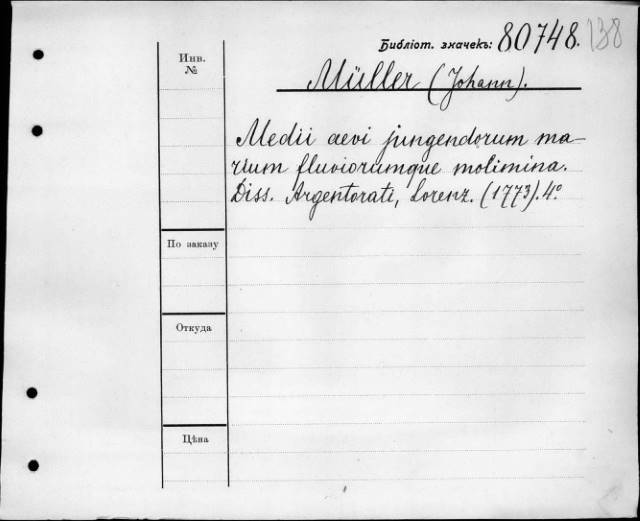 Библіот. значекъ: 80748. 138
Инв.
№
Müller (Johann).
Medii aevi jungendorum ma-
rium fluviorumque molimina.
Diss. Argentorati, Lorenz. (1773). 4º
По заказу
Откуда
Цѣна